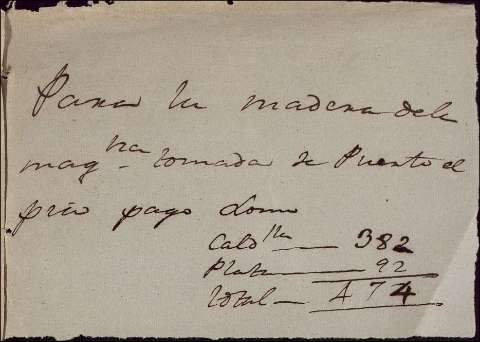 Para la madera dela
maqna tomada de Puerto el
pago
Caldlla — 382
Plata — 92
Total — 474